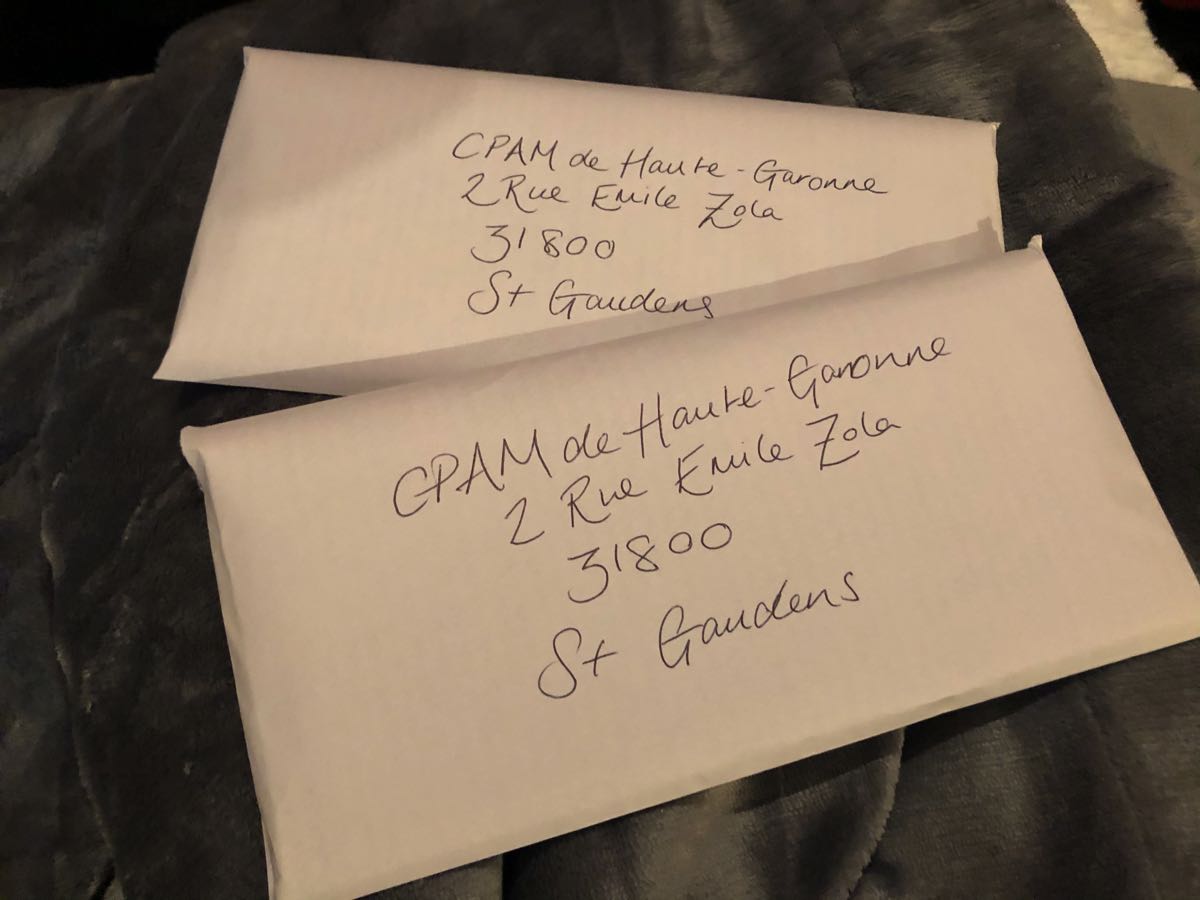 CPAM de Haute-Garonne
2 Rue Emile Zola
31800
St Gaudens
CPAM de Haute-Garonne
2 Rue Emile Zola
31800
St Gaudens